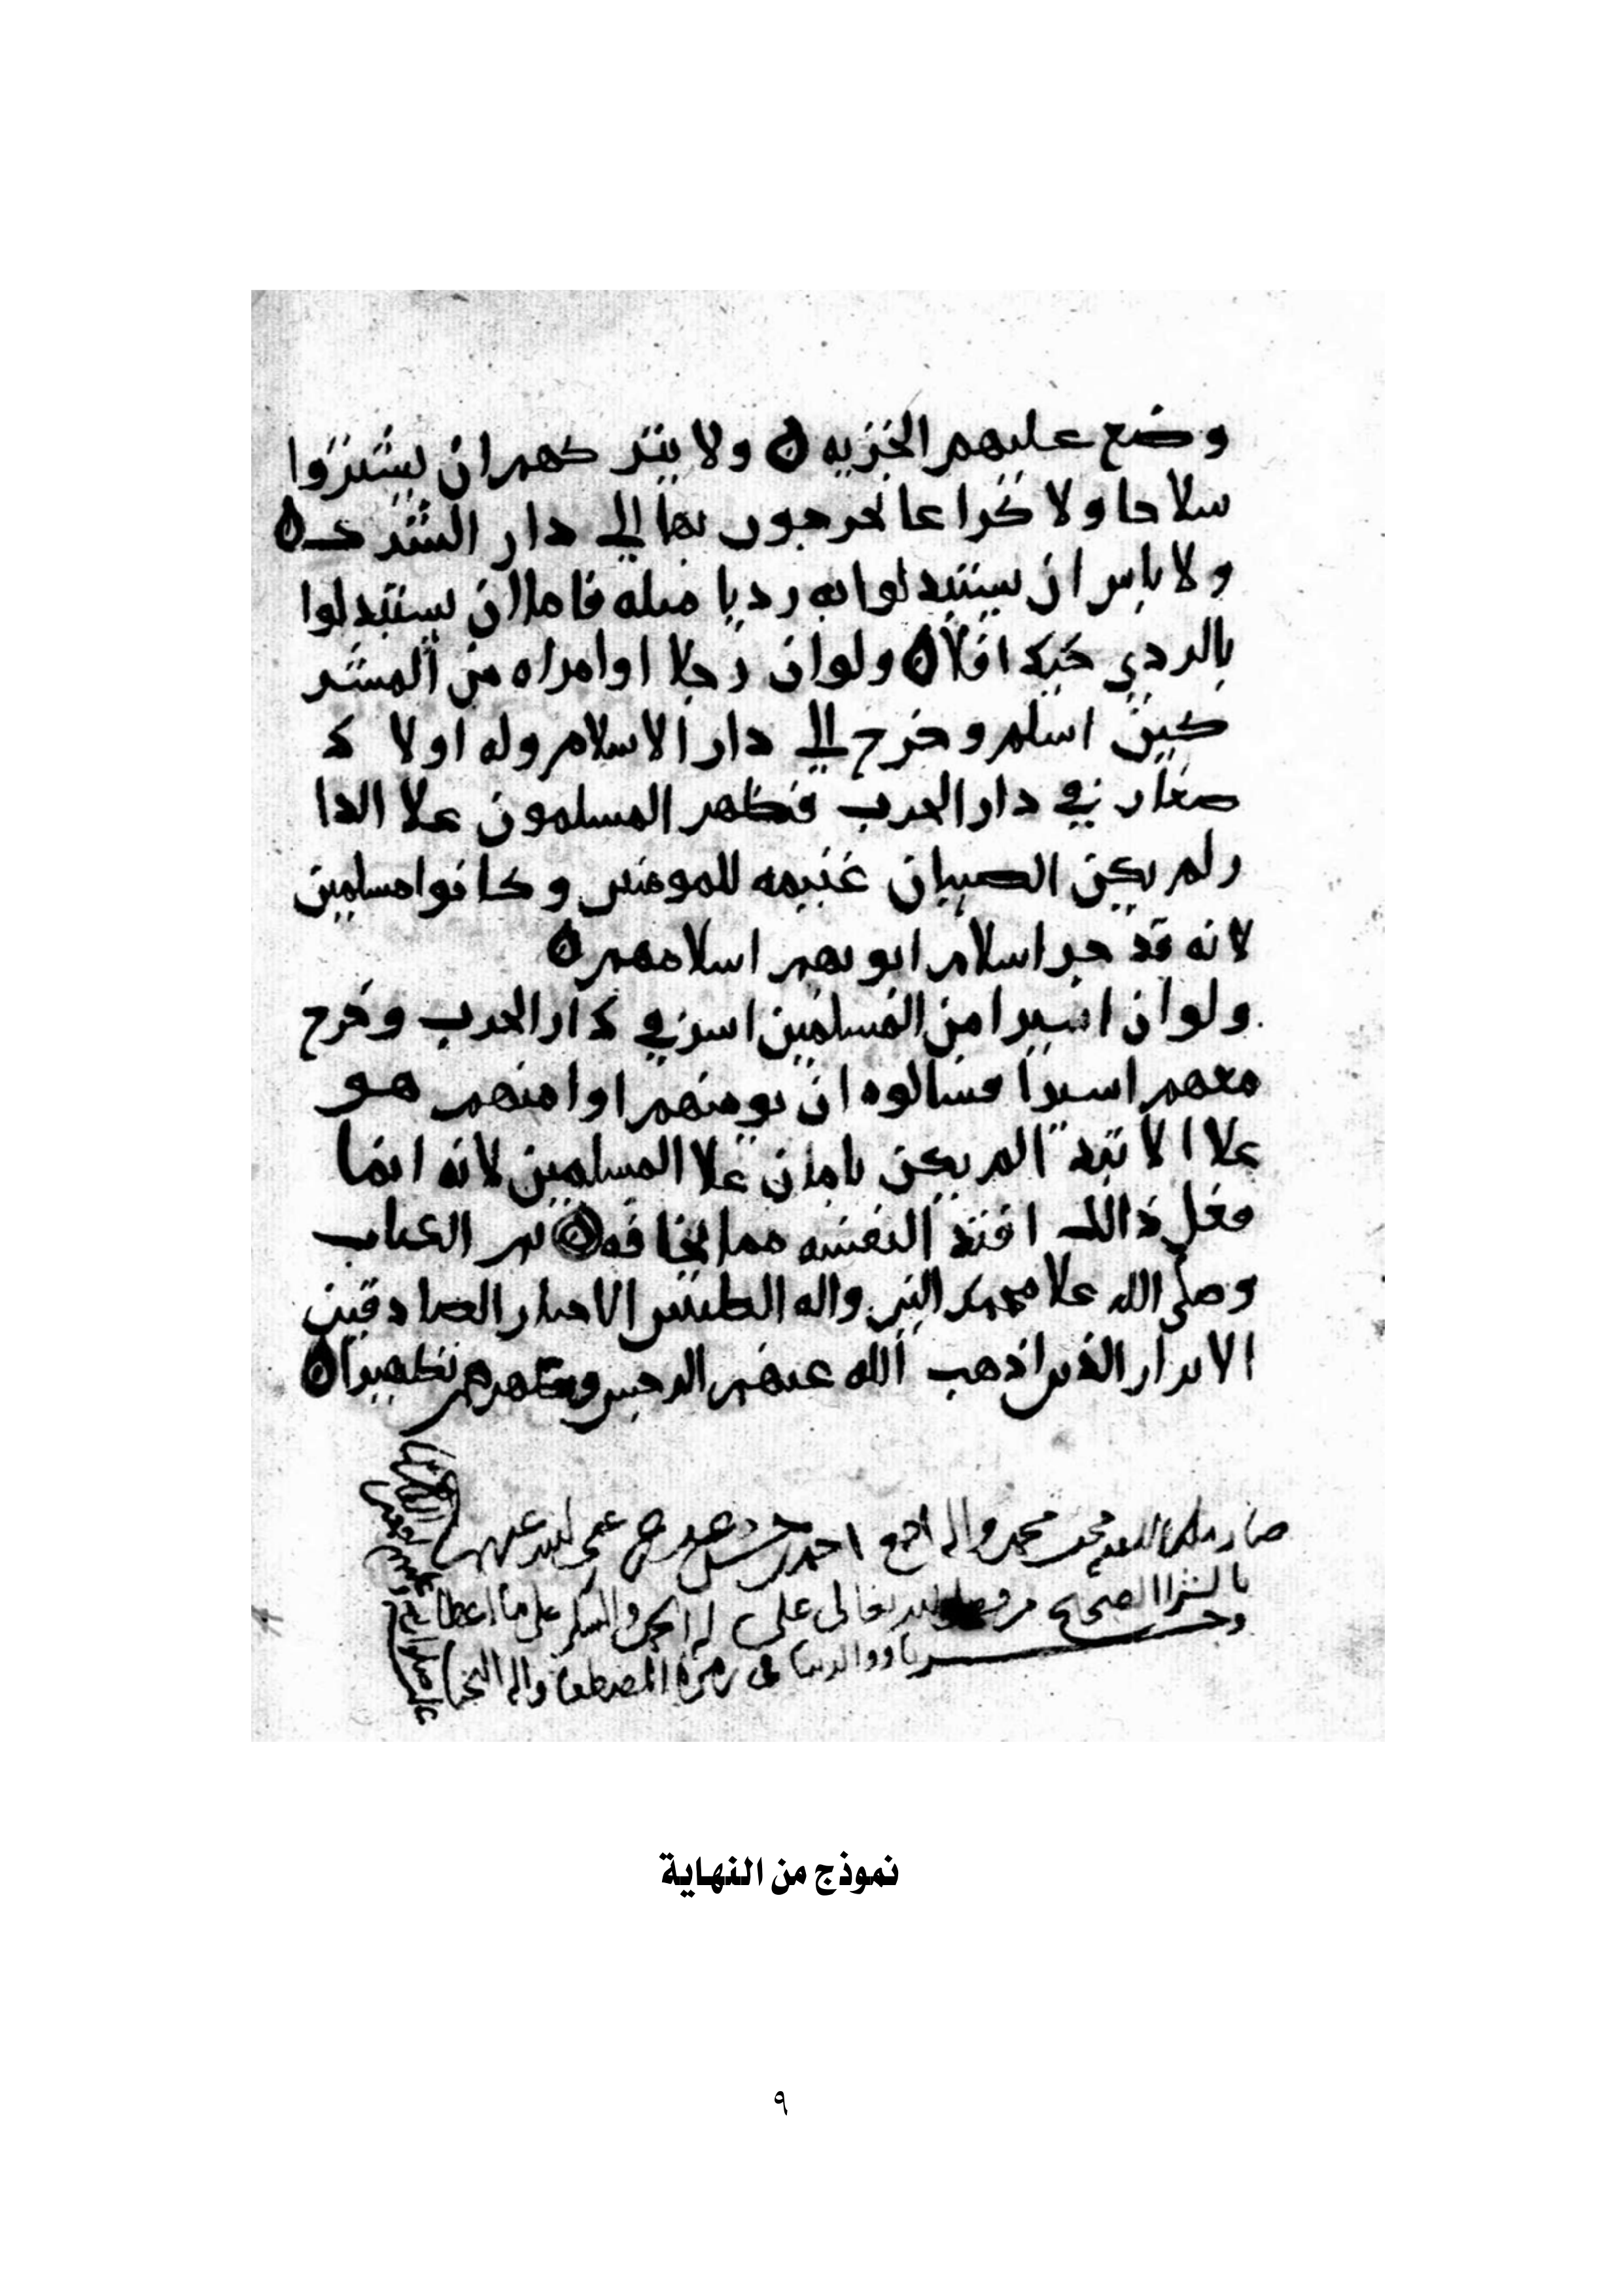 وضع عليهم الجزيه ۞ ولا يتر كهم ان يشتروا
سلاحا ولا كراعا يخرجون بها الى دار الشرك ۞
ولا باس ان يستبدلوا به رديا مثله فاما ان يستبدلوا
بالردي جيدا فلا ۞ ولو ان رجلا او امراه من المشر
كين اسلم وخرج الى دار الاسلام وله اولا د
صغار في دار الحرب فظهر المسلمون علا الدا
ر لم يكن الصبيان غنيمه للمومنين وكانوا مسلمين
لانه قد جر اسلام ابويهم اسلامهم ۞
ولو ان اسيرا من المسلمين اسر في دار الحرب وخرج
معهم اسيرا فسالوه ان يومنهم او امنهم هو
علا الابتدا لم يكن بامان علا المسلمين لانه انما
فعل ذالك افتدا لنفسه مما يخافه ۞ تم الكتاب
وصلى الله علا محمد النبي واله الطيبين الاخيار الصادقين
الابرار الذين اذهب الله عنهم الرجس وطهرهم تطهيرا ۞
صار محمد واله احمد
بالشرا الصحيح تعالى على والشكر على ما اعطا
ووالدينا في زمرة المصطفا واله
نموذج من النهاية
٩